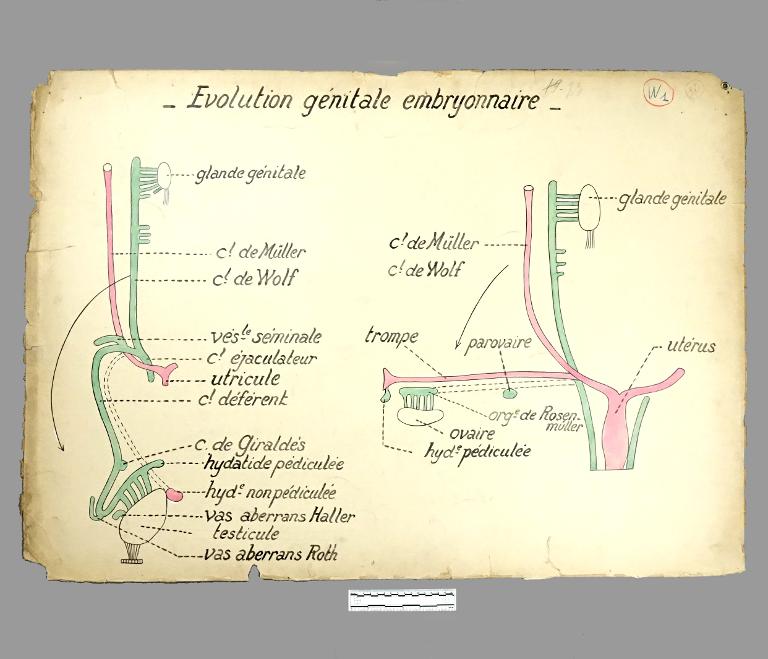 _ Evolution génitale embryonnaire _
W1
glande génitale
cl de Müller
cl de Wolf
vésle séminale
cl éjaculateur
utricule
cl déférent
c. de Giraldés
hydatide pédiculée
hyde non pédiculée
vas aberrans Haller
testicule
vas aberrans Roth
glande génitale
cl de Müller
cl de Wolf
trompe
parovaire
utérus
orgs de Rosen-
müller
ovaire
hyde pédiculée